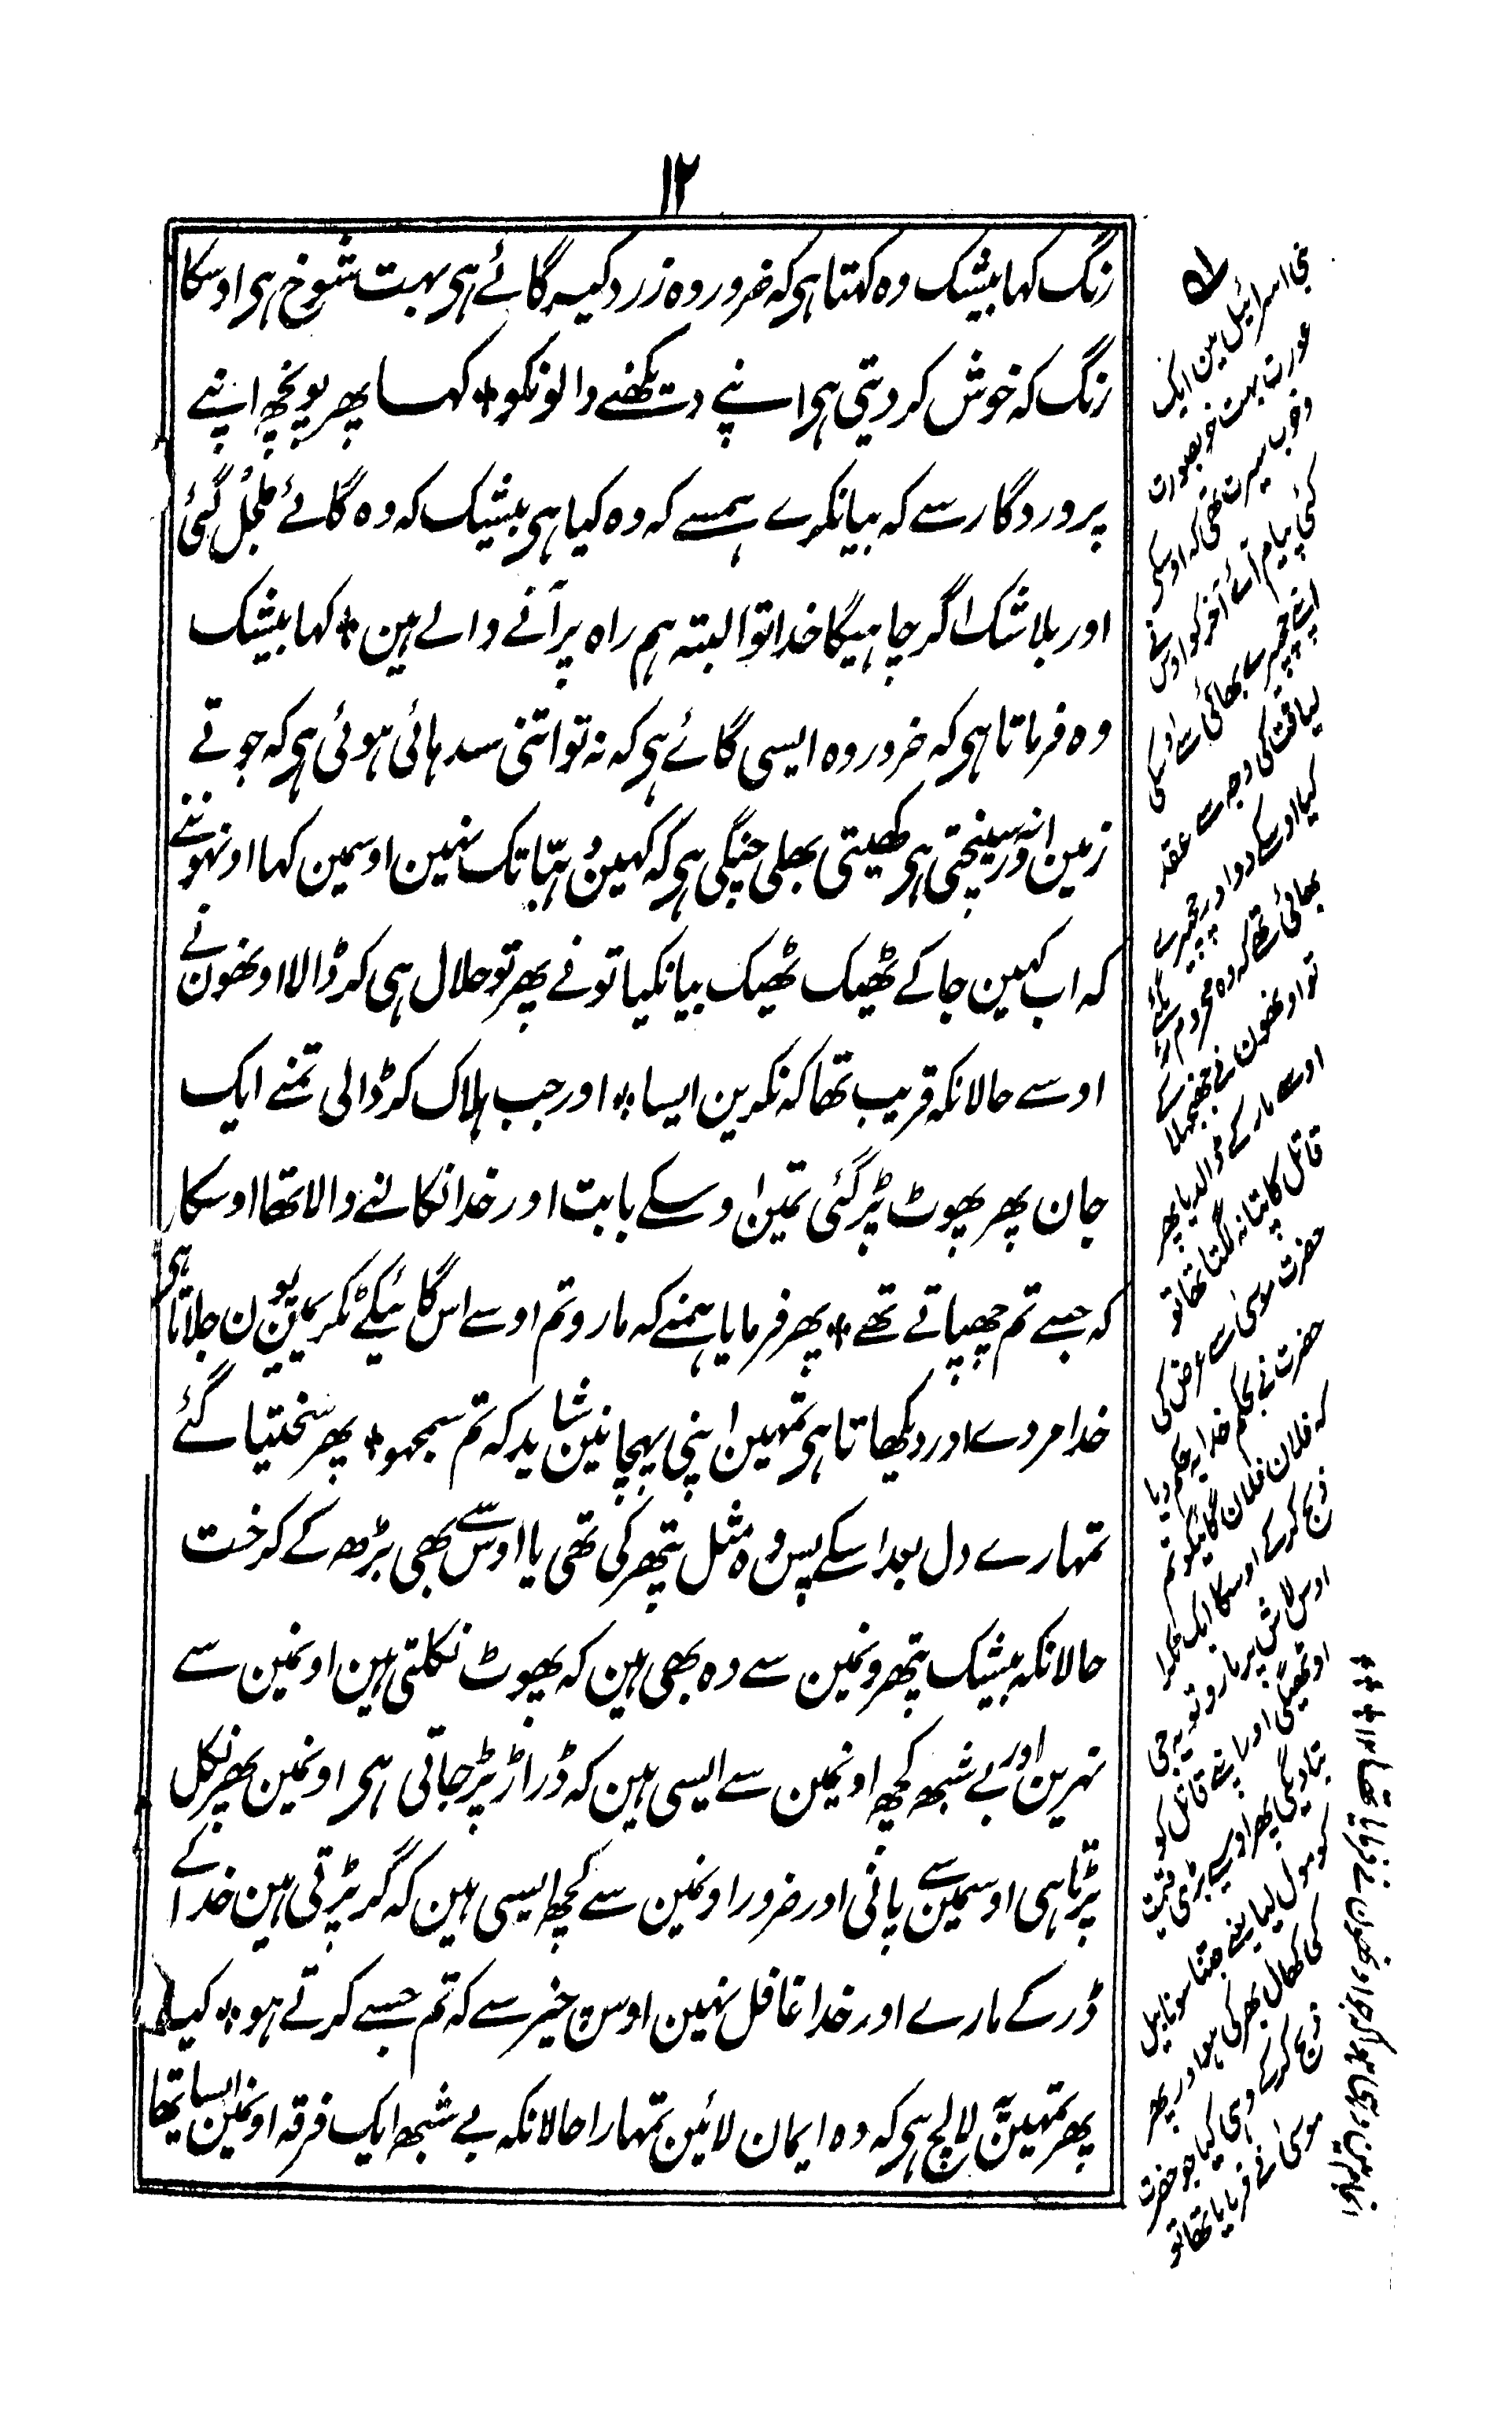 ۱۲
رنگ کہا بیشک وہ کہتا ہی کہ ضرور وہ زرد گائے ہی بہت شوخ ہی اوسکا
رنگ کہ خوش کر دیتی ہی اپنے دیکھنے والونکو * کہا پھر پوچھہ اپنے
پروردگار سے کہ بیانکرے ہمسے کہ وہ کیا ہی بیشک کہ وہ گائے گئی
اور بلا شک اگر چاہیگا خدا تو البتہ ہم راہ پر آنے والے ہین * کہا بیشک
وہ فرماتا ہی کہ ضرور وہ ایسی گائے ہی کہ نہ تو اتنی سدہائی ہوئی ہی کہ جوتے
زمین اور نہ سینچتی ہی کھیتی بھلی چنگی ہی کہ کہین دہبّا تک نہین اوسمین کہا اونہوننے
کہ اب کہین جا کے ٹھیک ٹھیک بیانکیا تونے پھر تو حلال ہی کر ڈالا اونھون نے
اوسے حالانکہ قریب تھا کہ نکرین ایسا * اور جب ہلاک کر ڈالی تمنے ایک
جان پھر پھوٹ پڑ گئی تمین اوسکے بابت اور خدا نکالنے والا تھا اوسکا
کہ جسے تم چھپاتے تھے * پھر فرمایا ہمنے کہ مارو تم اوسے اس گائیکے ٹکریسے یون جلاتا ہی
خدا مردے اور دیکھاتا ہی تمہین اپنی پہچانین شاید کہ تم سمجھو * پھر سختیا گئے
تمہارے دل بعد اسکے پس وہ مثل پتھر کی تھی یا اوس سے بھی بڑھ کے کرخت
حالانکہ بیشک پتھرونمین سے وہ بھی ہین کہ پھوٹ نکلتی ہین اونمین سے
نہرین اور بے شبھہ کچھہ اونمین سے ایسی ہین کہ ڈراڑ پڑ جاتی ہی اونمین پھر نکل
پڑتا ہی اوسمین سے پانی اور ضرور اونمین سے کچھ ایسی ہین کہ گر پڑتی ہین خدا کے
ڈر کے مارے اور خدا غافل نہین اوس چیز سے کہ تم جسے کرتے ہو * کیا
پھر تمہین یہ لالچ ہی کہ وہ ایمان لائین تمہارا حالانکہ بے شبھ ایک فرقہ اونمین ایسا تھا
بنی اسرائیل مین ایک
عورت بہت خوبصورت
وخوب سیرت تھی کہ اوسکی
کئی پیام آئے آخر کو اوسنے
اپنے چچیرے بھائی سے اوسکی
لیاقت کی وجہ سے عقد
کیا اوسکے دو اور چچیرے
بھائی تھے کہ وہ محروم رہے
تو اونھون نے جھنجھلا کے
اوسے مار کے ڈالدیا پھر
قاتل کا پتا نہ لگتا تھا تو
حضرت موسی سے عرض کی
حضرت نے بحکم خدا یہ حکم دیا
کہ فلان فلان گائیکو تم
ذبح کر کے اوسکا ایک ٹکڑا
اوس لاش پر مارو تو یہ جی
اوٹھیگی اور اپنے قاتل کو
بتا دیگی پھر اوسے بڑی قیمت
کو مول لیا یعنے جتنا سونا بیل
کی کھال بھر کی ہو اور پھر
ذبح کر کے وہی کیا جو حضرت
موسی نے فرمایا تھا تو